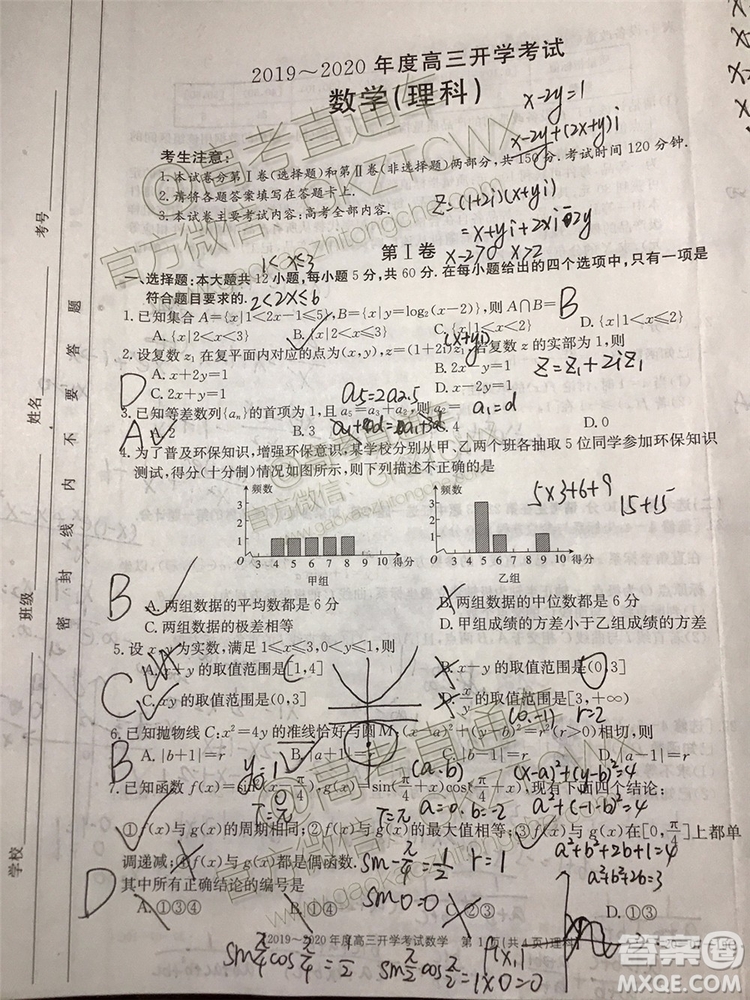 2019～2020年度高三开学考试
数学(理科)
x-2y=1
x-2y+(2x+y)i
考生注意:
1.本试卷分第Ⅰ卷(选择题)和第Ⅱ卷(非选择题)两部分,共150分.考试时间120分钟.
2.请将各题答案填写在答题卡上.
3.本试卷主要考试内容:高考全部内容.
Z=(1+2i)(x+yi)
=x+yi+2xi-2y
第Ⅰ卷
1<x≤3
x-2>0 x>2
一、选择题:本大题共12小题,每小题5分,共60分.在每小题给出的四个选项中,只有一项是
符合题目要求的.
2<2x≤6
1.已知集合A={x|1<2x-1≤5},B={x|y=log₂(x-2)},则A∩B=
B
A.{x|2<x<3} B.{x|2<x≤3} C.{x|1<x<3} D.{x|1<x≤2}
(x+yi)
2.设复数z₁在复平面内对应的点为(x,y),z=(1+2i)z₁,若复数z的实部为1,则
A.x+2y=1 B.2x-y=1
Z=Z₁+2iZ₁
D
C.2x+y=1 D.x-2y=1
a5=2a2.5
3.已知等差数列{aₙ}的首项为1,且a₅=a₃+a₂,则
a₁=d
A
A.2 B.3
4
4.为了普及环保知识,增强环保意识,某学校分别从甲、乙两个班各抽取5位同学参加环保知识
测试,得分(十分制)情况如图所示,则下列描述不正确的是
频数
3
2
1
O 3 4 5 6 7 8 9 10 得分
甲组
频数
3
2
1
O 3 4 5 6 7 8 9 10 得分
乙组
5×3+6+9
15+15
B
A.两组数据的平均数都是6分 B.两组数据的中位数都是6分
C.两组数据的极差相等 D.甲组成绩的方差小于乙组成绩的方差
5.设x,y为实数,满足1≤x≤3,0<y≤1,则
A.x+y的取值范围是[1,4] B.x-y的取值范围是(0,3]
C
C.xy的取值范围是(0,3] D.x/y的取值范围是[3,+∞)
(0,-1) r=2
6.已知抛物线C:x²=4y的准线恰好与圆M:(x-a)²+(y-b)²=r²(r>0)相切,则
B
A.|b+1|=r B.|a+1|=r C.|b-1|=r D.|a-1|=r
y=-1
(a,b)
(x-a)²+(y-b)²=4
7.已知函数f(x)=sin(x+π/4),g(x)=sin(π/4+x)cos(π/4+x),现有下面四个结论:
a=0,b=2
a²+(-1-b)²=4
①f(x)与g(x)的周期相同;②f(x)与g(x)的最大值相等;③f(x)与g(x)在[0,π/4]上都单
调递减;④f(x)与g(x)都是偶函数.
a²+b²+2b+1=4
a²+b²+2b=3
r=1
其中所有正确结论的编号是
D
A.①③④ B.①④ C.②③ D.①③
sin0=0
2019～2020年度高三开学考试数学 第1页(共4页)理科
班级
姓名
考号
学校
密封线内不要答题
@高考直通车
官方微信:GKZTCWX
www.gaokaozhitongche.com
答案圈
MXQE.COM